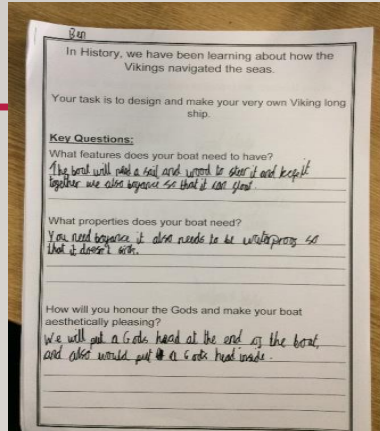 Ben
In History, we have been learning about how the
Vikings navigated the seas.
Your task is to design and make your very own Viking long
ship.
Key Questions:
What features does your boat need to have?
The boat will need a sail and wood to steer it and keep it
together we also boyance so that it can float.
What properties does your boat need?
You need boyance it also needs to be waterproof so
that it doesn't sink.
How will you honour the Gods and make your boat
aesthetically pleasing?
We will put a Gods head at the end of the boat,
and also would put a Gods head inside.